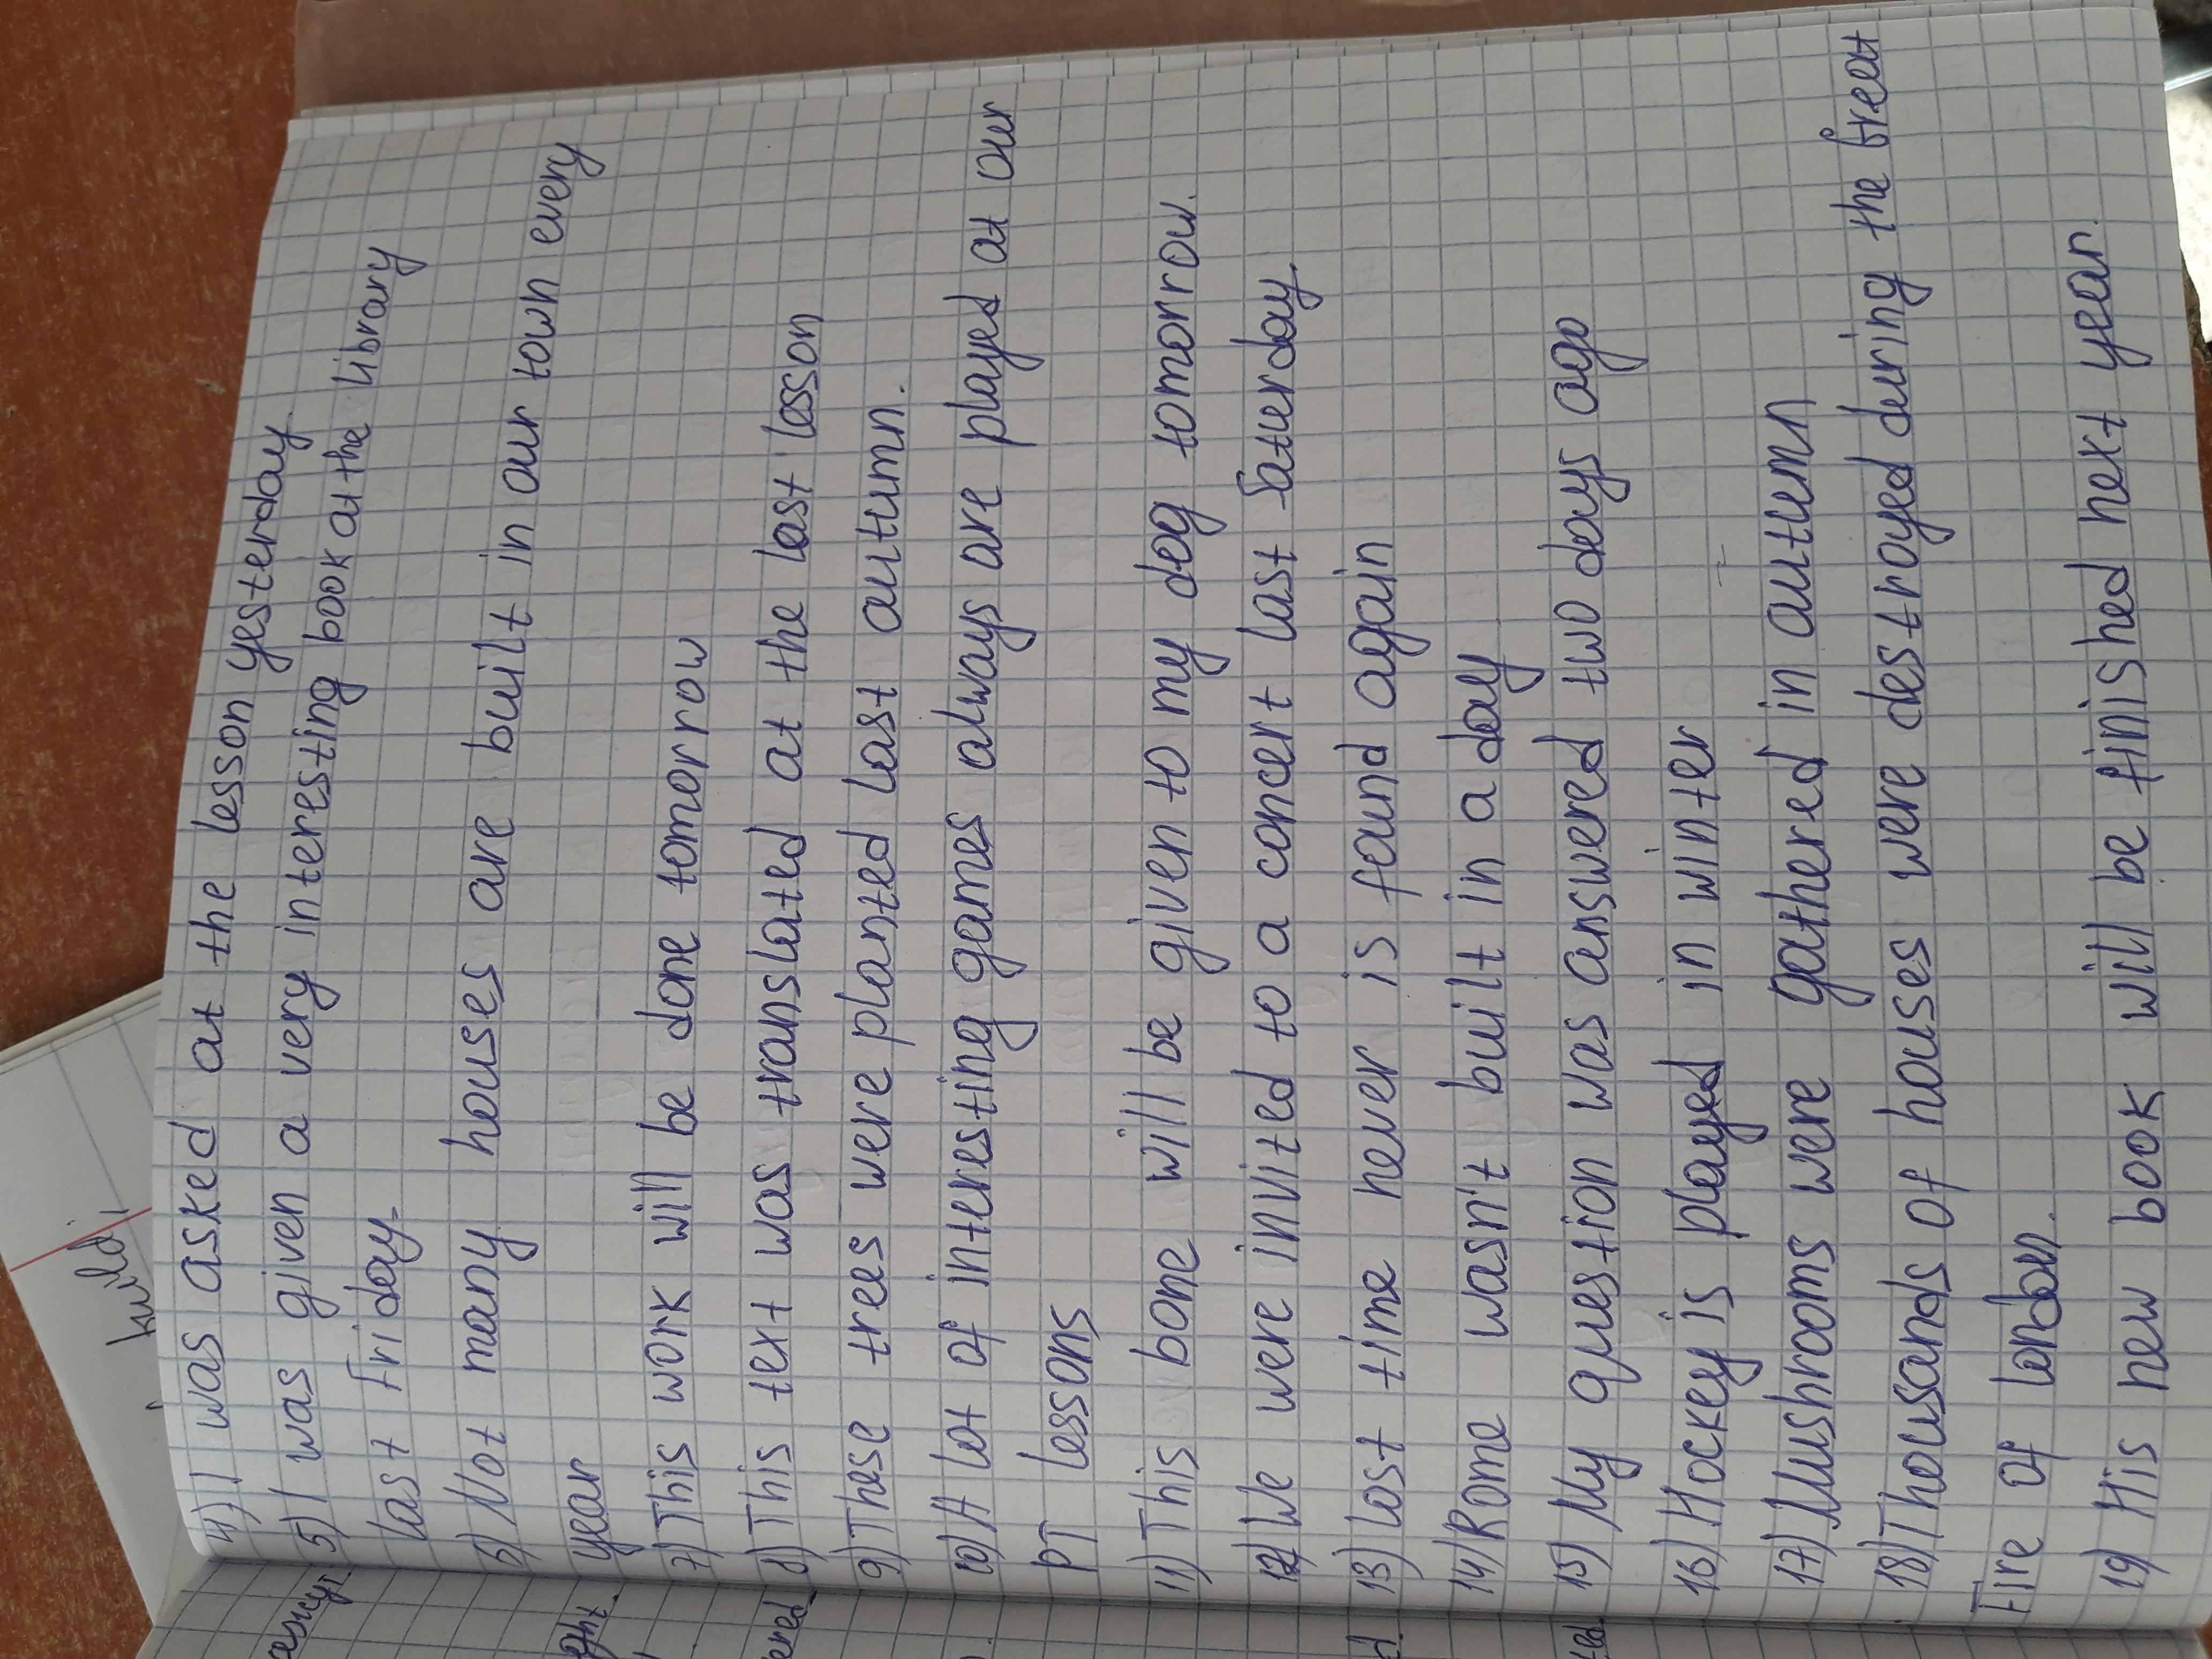 4) I was asked at the lesson yesterday.
5) I was given a very interesting book at the library
last Friday.
6) Not many houses are built in our town every
year
7) This work will be done tomorrow
8) This text was translated at the last lesson
9) These trees were planted last autumn.
10) A lot of interesting games always are played at our
PT lessons
11) This bone will be given to my dog tomorrow.
12) We were invited to a concert last Saturday.
13) Lost time never is found again
14) Rome wasn't built in a day
15) My question was answered two days ago
16) Hockey is played in winter
17) Mushrooms were gathered in autumn
18) Thousands of houses were destroyed during the Great
Fire of London.
19) His new book will be finished next year.